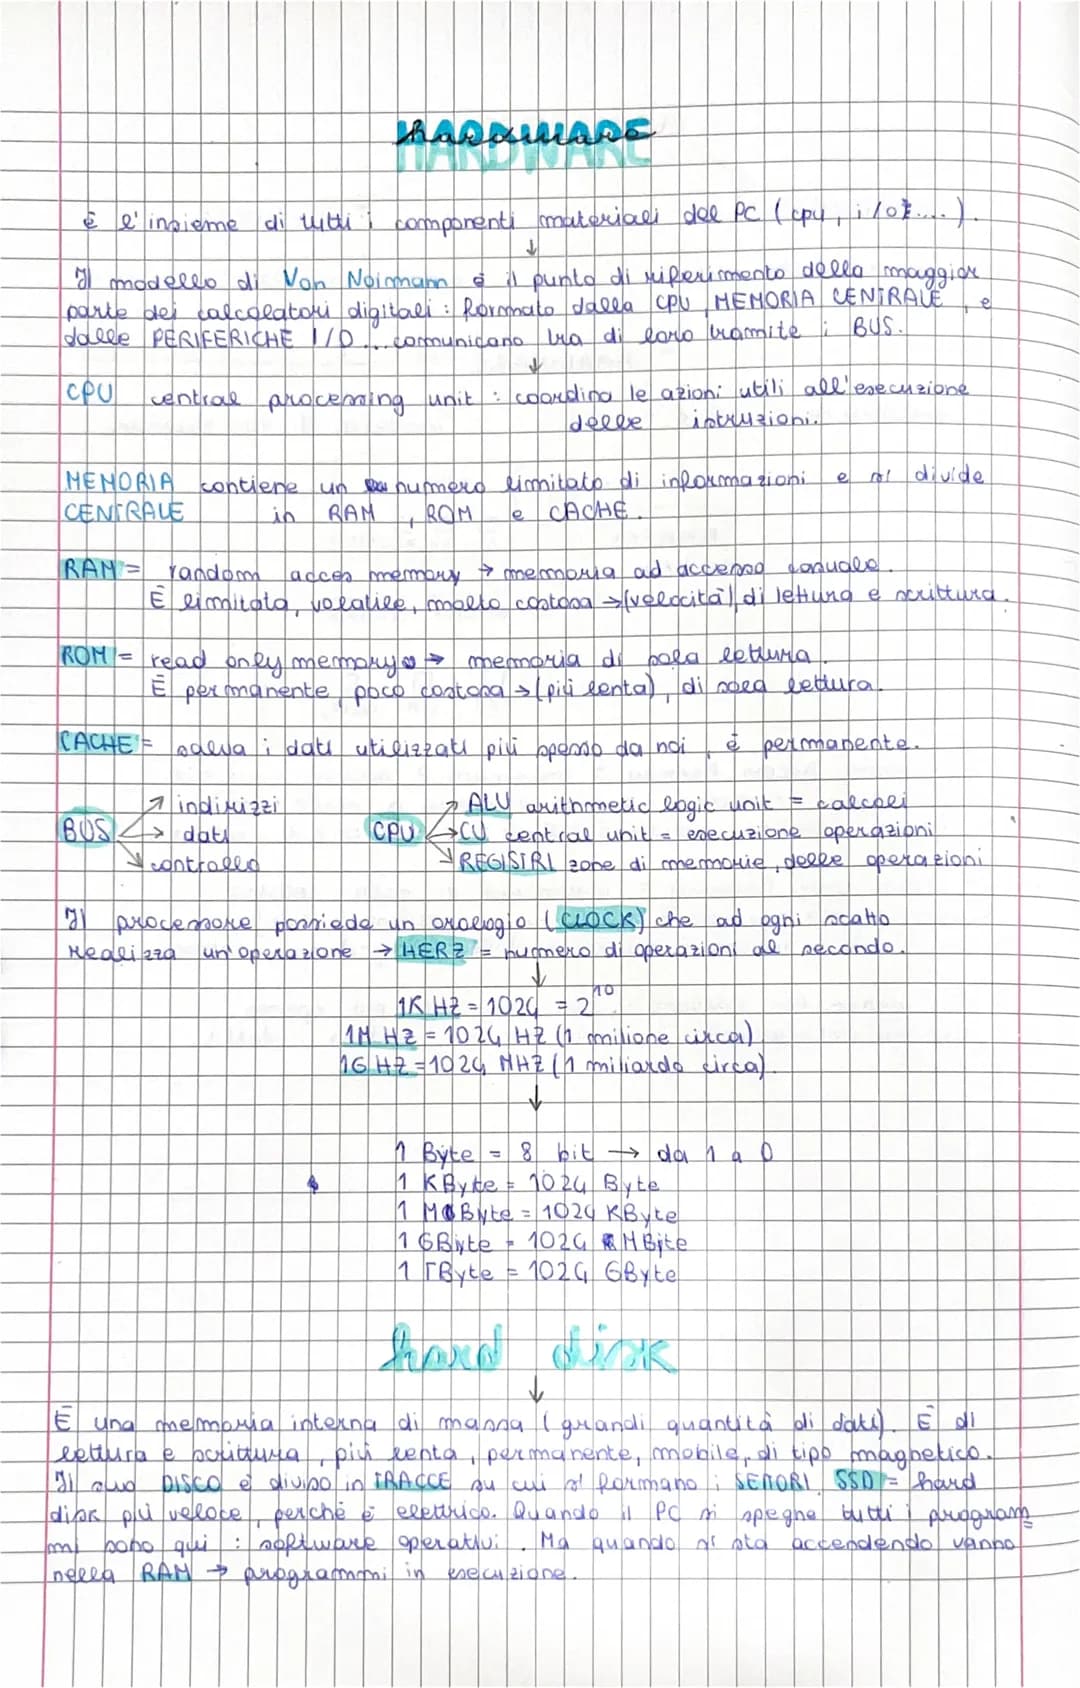 hardware
HARDWARE
è l'insieme di tutti i componenti materiali del PC (cpu, i/o....).
↓
Il modello di Von Noimam è il punto di riferimento della maggior
parte dei calcolatori digitali: formato dalla CPU, MEMORIA CENTRALE, e
dalle PERIFERICHE I/O... comunicano tra di loro tramite i BUS.
↓
CPU central processing unit: coordina le azioni utili all'esecuzione
delle intruzioni.
MEMORIA contiene un numero limitato di informazioni e si divide
CENTRALE in RAM, ROM e CACHE.
RAM = random acces memory → memoria ad accesso casuale.
È limitata, volatile, molto costosa → (velocità) di lettura e scrittura.
ROM = read only memory → memoria di sola lettura.
È permanente, poco costosa → (più lenta), di sola lettura.
CACHE = salva i dati utilizzati più spesso da noi, è permanente.
BUS → indirizzi
→ dati
→ controllo
CPU → ALU arithmetic logic unit = calcoli
→ CU central unit = esecuzione operazioni
→ REGISTRI zone di memorie, delle operazioni
Il processore possiede un orologio (CLOCK) che ad ogni scatto
realizza un'operazione → HERZ = numero di operazioni al secondo.
↓
1K HZ = 1024 = 2¹⁰
1M HZ = 1024 HZ (1 milione circa)
1G HZ = 1024 MHZ (1 miliardo circa).
↓
1 Byte = 8 bit → da 1 a 0
1 KByte = 1024 Byte
1 MByte = 1024 KByte
1 GByte = 1024 MByte
1 TByte = 1024 GByte
hard disk
↓
È una memoria interna di massa (grandi quantità di dati). È di
lettura e scrittura, più lenta, permanente, mobile, di tipo magnetico.
Il suo DISCO è diviso in TRACCE su cui si formano i SETTORI. SSD = hard
disk più veloce, perché è elettrico. Quando il PC si spegne tutti i program
mi sono qui: software operativi. Ma quando si sta accendendo vanno
nella RAM → programmi in esecuzione.